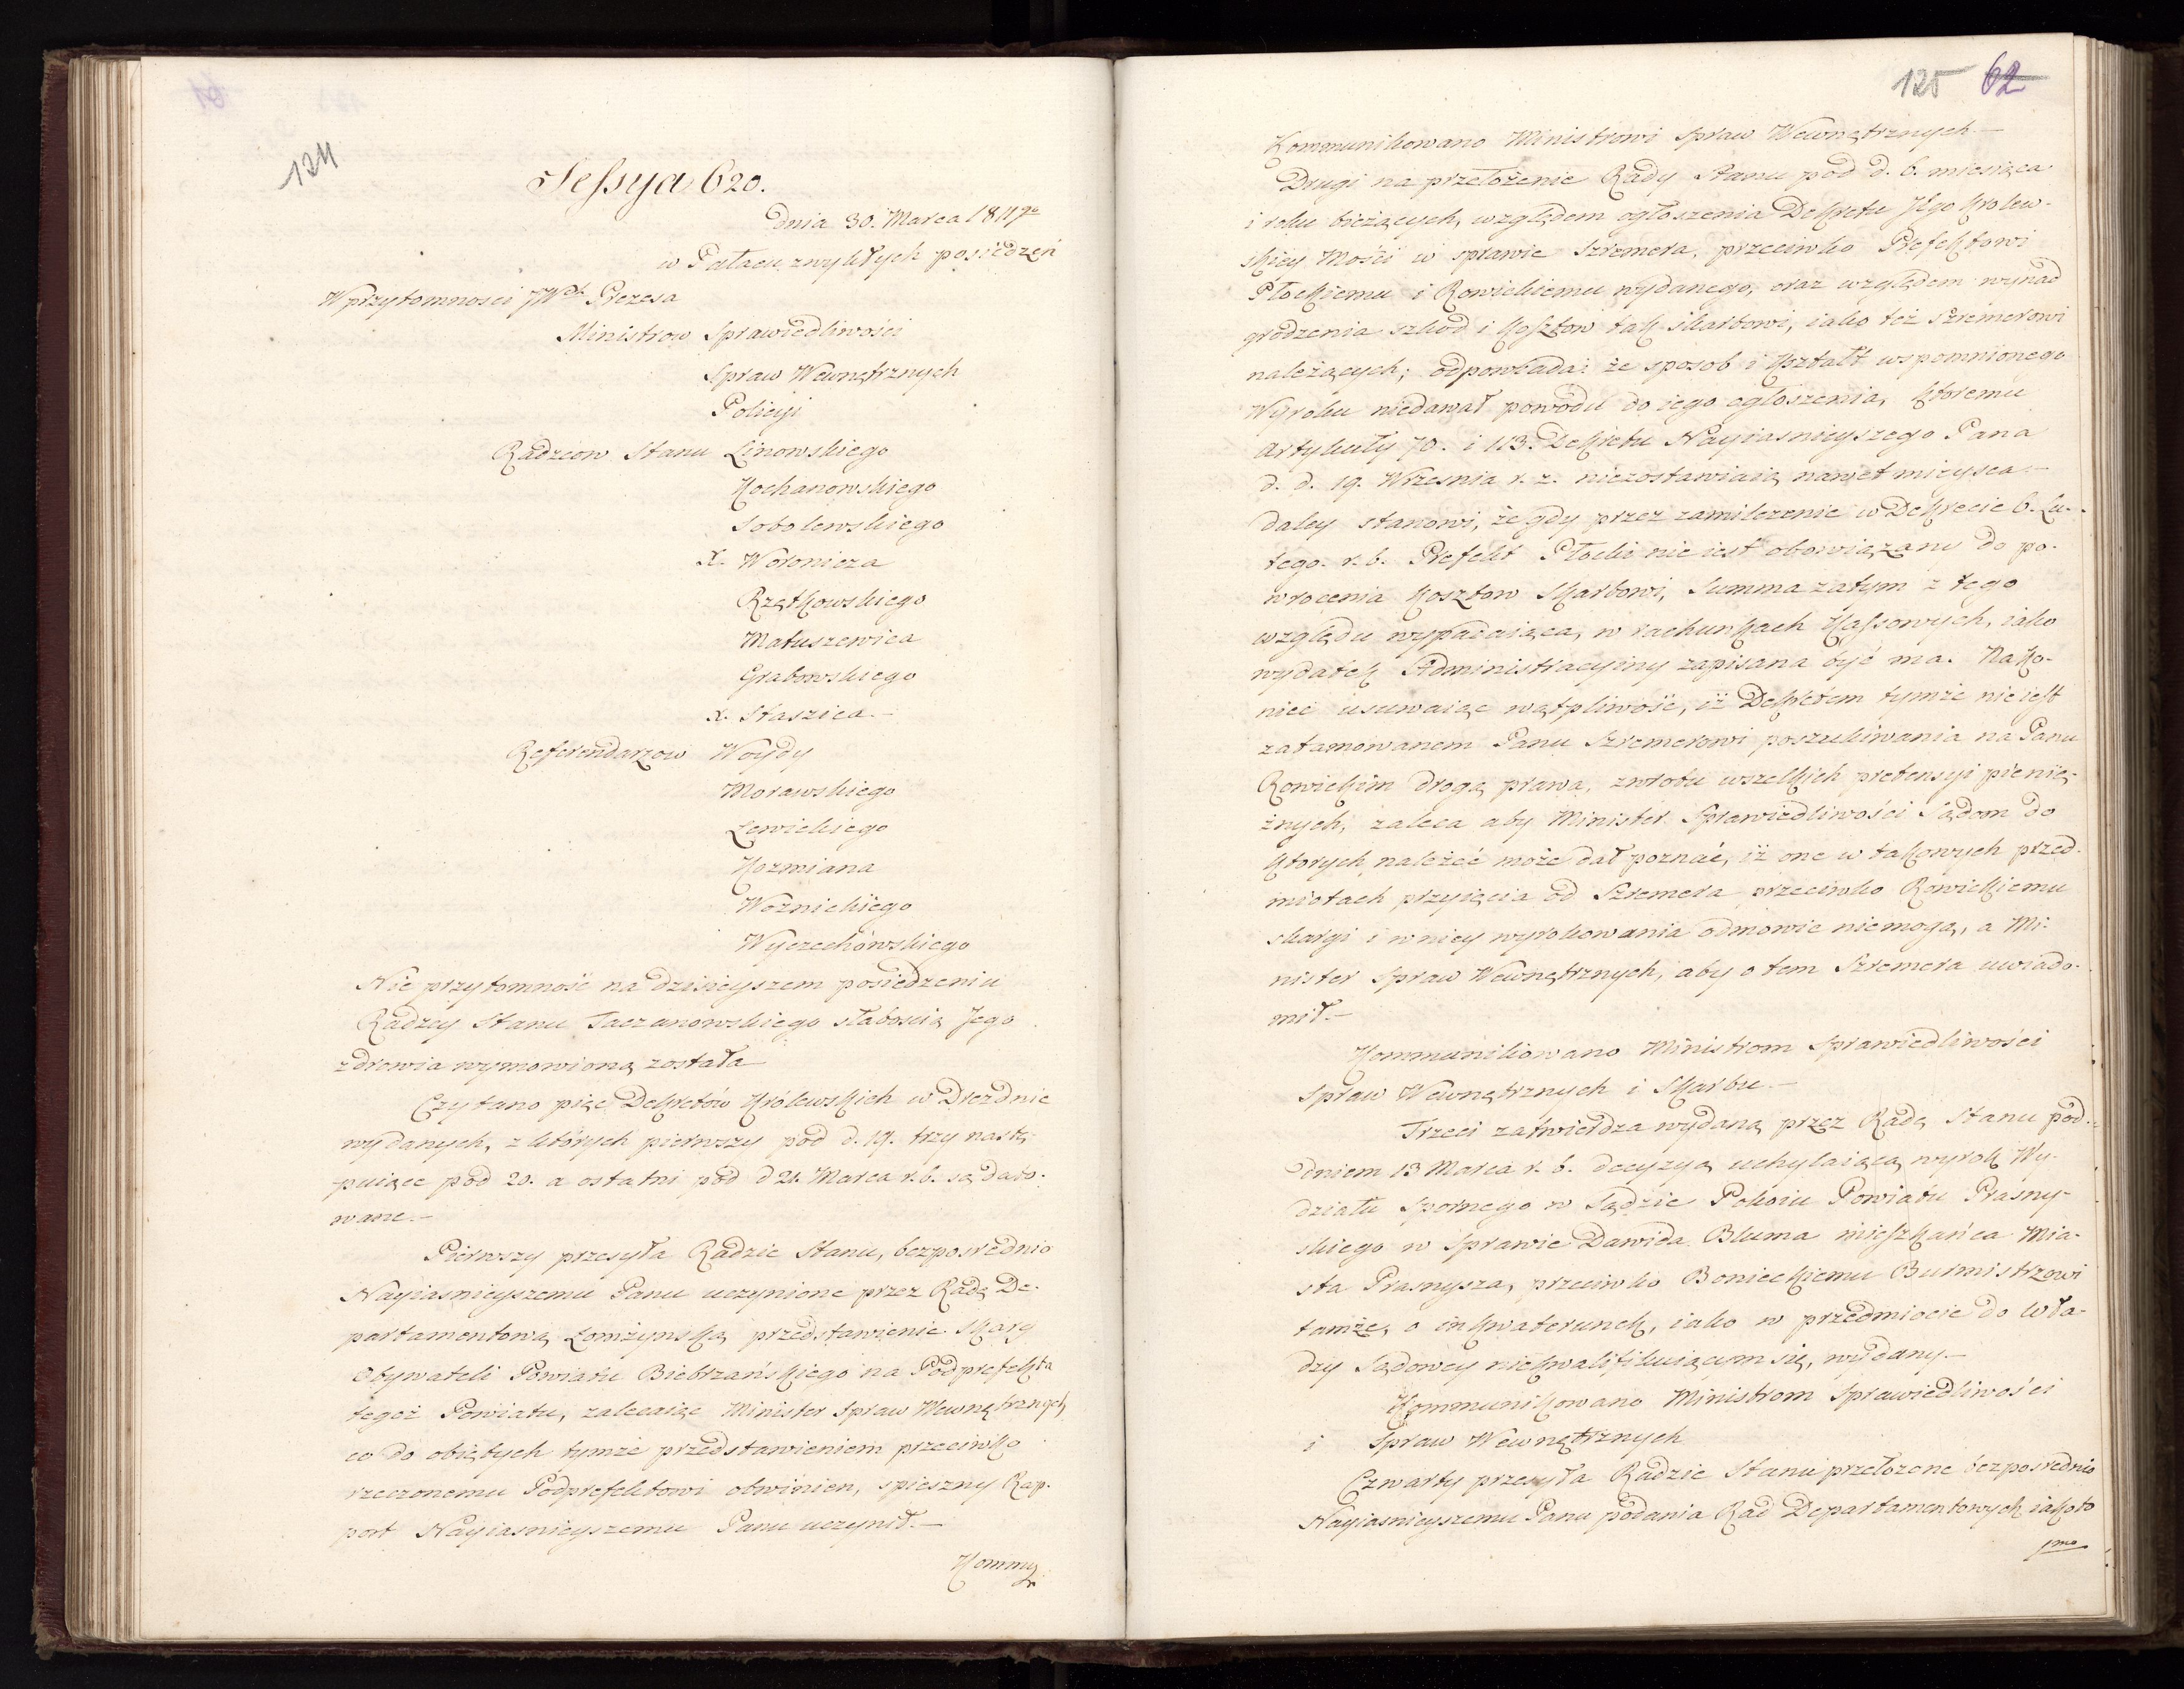 124
Sessya 620.
Dnia 30. Marca 1811go
w Pałacu zwykłych posiedzeń
W przytomnosci JWch Prezesa
Ministrow Sprawiedliwości
Spraw Wewnętrznych
Policyi
Radzcow Stanu Linowskiego
Kochanowskiego
Sobolewskiego
X. Woronicza
Rzętkowskiego
Matuszewica
Grabowskiego
X. Staszica.—
Referendarzow Woydy
Morawskiego
Lewickiego
Kozmiana
Woznickiego
Wyczechówskiego
Nie przytomność na dzisieyszem posiedzeniu
Radzcy Stanu Taczanowskiego słabością Jego
zdrowia wymowioną została
Czytano pięc Dekretów Królewskich w Dreznie
wydanych, z których pierwszy pod d. 19. trzy nastę-
puiące pod 20. a ostatni pod d 21. Marca r. b. są dato-
wane.—
Pierwszy przesyła Radzie Stanu, bezposrednio
Nayiasnieyszemu Panu uczynione przez Radę De-
partamentową Łomżynską przedstawienie skarg
Obywateli Powiatu Biebrzańskiego na Podprefekta
tegoż Powiatu, zalecaiąc Minister Spraw Wewnętrznych
co do obiętych tymże przedstawieniem przeciwko
rzeczonemu Podprefektowi obwinien, spieszny Rap-
port Nayiasnieyszemu Panu uczynił.—
Kommu
125 62
Kommunikowano Ministrowi Spraw Wewnętrznych.—
Drugi na przełożenie Rady Stanu pod d. 6. miesiąca
i roku bieżących, względem ogłoszenia Dekretu JEgo Krolew-
skiey Mości w sprawie Szremera, przeciwko Prefektowi
Płockiemu i Rowickiemu wydanego, oraz względem wynad
grodzenia szkod i kosztow tak skarbowi, iako też Szremerowi
należących; odpowiada: że sposob i kształt wspomnionego
Wyroku niedawał powodu do iego ogłoszenia, któremu
artykuły 70. i 113. Dekretu Nayiasnieyszego Pana
d. d. 19. Wrzesnia r. z. niezostawiaią nawet mieysca.—
daley stanowi, że gdy przez zamilczenie w Dekrecie 6. Lu-
tego. r. b. Prefekt Płocki nie iest obowiązany do po-
wrocenia kosztow Skarbowi, Summa zatym z tego
względu wypadaiąca, w rachunkach Kassowych, iako
wydatek Administracyiny zapisana być ma. Nako-
niec usuwaiąc wątpliwość, iż Dekretem tymże nie iest
zatamowanem Panu Szremerowi poszukiwania na Panu
Rowickim drogą prawa, zwrotu wszelkich pretensyi pienię-
żnych, zaleca aby Minister Sprawiedliwości Sądom do
ktorych należeć może dał poznać, iż one w takowych przed-
miotach przyięcia od Szremera przeciwko Rowickiemu
skargi i w niey wyrokowania odmowic niemogą, a Mi-
nister Spraw Wewnętrznych, aby o tem Szremera uwiado-
mił.—
Kommunikowano Ministrom Sprawiedliwości
Spraw Wewnętrznych i Skarbu.—
Trzeci zatwierdza wydaną przez Radę Stanu pod
dniem 13 Marca r. b. decyzyą uchylaiącą wyrok Wy-
działu Spornego w Sądzie Pokoiu Powiatu Prasny-
skiego w Sprawie Dawida Bluma mieszkańca Mia-
sta Prasnysza, przeciwko Bonieckiemu Burmistrzowi
tamże, o inkwaterunek, iako w przedmiocie do Wła-
dzy Sądowey niekwalifikuiącym się, wydany.—
Kommunikowano Ministrom Sprawiedliwości
i Spraw Wewnętrznych
Czwarty przesyła Radzie Stanu przełożone bezposrednio
Nayiasnieyszemu Panu podania Rad Departamentowych iakoto
1mo